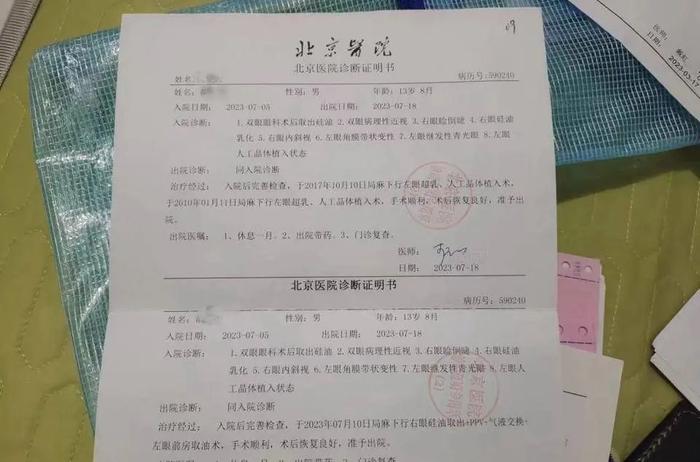 09
北京醫院
北京医院诊断证明书
姓名: 病历号:590240
性别:男 年龄:13岁 8月
入院日期: 2023-07-05 出院日期:2023-07-18
入院诊断: 1.双眼眼科术后取出硅油 2.双眼病理性近视 3.右眼睑倒睫 4.右眼硅油
乳化 5.右眼内斜视 6.左眼角膜带状变性 7.左眼继发性青光眼 8.左眼
人工晶体植入状态
出院诊断: 同入院诊断
治疗经过: 入院后完善检查,于2017年10月10日局麻下行左眼超乳、人工晶体植入术,
于2010年01月11日局麻下行左眼超乳、人工晶体植入术,手术顺利,术后恢复良好,准予出
院。
出院医嘱: 1、休息一月。2、出院带药。3、门诊复查。
医师:
日期: 2023-07-18
北京医院诊断证明书
病历号:590240
姓名: 性别:男 年龄:13岁 8月
入院日期: 2023-07-05 出院日期:2023-07-18
入院诊断: 1.双眼眼科术后取出硅油 2.双眼病理性近视 3.右眼睑倒睫 4.右眼硅油
乳化 5.右眼内斜视 6.左眼角膜带状变性 7.左眼继发性青光眼 8.左眼人
工晶体植入状态
出院诊断: 同入院诊断
治疗经过: 入院后完善检查,于2023年07月10日局麻下行右眼硅油取出+PPV+气液交换+
左眼前房取油术,手术顺利,术后恢复良好,准予出院。
医师:
日期: 2023-03-17